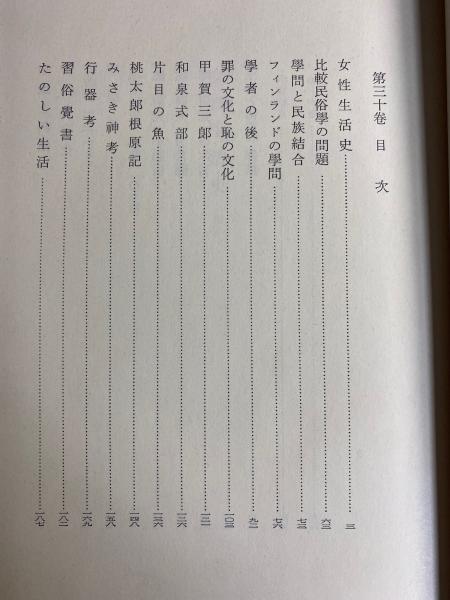 第三十卷 目次
女性生活史……三
比較民俗學の問題……六三
學問と民族結合……七三
フィンランドの學問……七六
學者の後……九一
罪の文化と恥の文化……一〇三
甲賀三郎……
和泉式部……
片目の魚……
桃太郎根原記……一四八
みさき神考……一五八
行器考……一六九
習俗覺書……一八二
たのしい生活……一八七